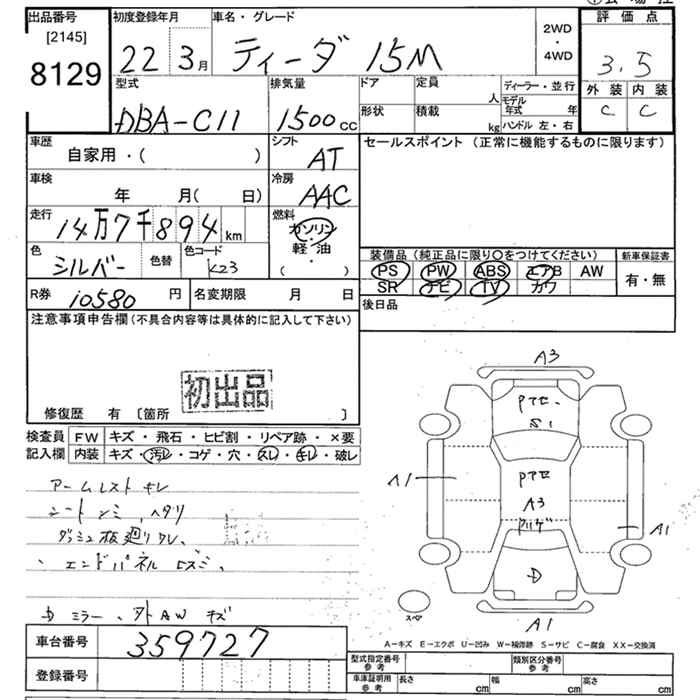 出品番号 初度登録年月 車名・グレード 評価点
[2145]
8129 22 3月 ティーダ 15M 2WD・4WD 3.5
型式 排気量 ドア 定員 人 ディーラー・並行 外装 内装
DBA-C11 1500cc 形状 積載 kg モデル年式 年 ハンドル 左・右 C C
車歴 シフト セールスポイント(正常に機能するものに限ります)
自家用・( ) AT
車検 冷房
年 月(日) AAC
走行 燃料
14万7千894km ガソリン・軽油
色 色替 色コード ( )
シルバー K23
装備品(純正品に限り〇をつけてください) 新車保証書
PS PW ABS エアB AW 有・無
SR ナビ TV カワ
R券 10580円 名変期限 月 日 後日品
注意事項申告欄(不具合内容等は具体的に記入して下さい)
初出品
修復歴 有 [箇所 ]
検査員 FW キズ・飛石・ヒビ割・リペア跡・×要
記入欄 内装 キズ・汚レ・コゲ・穴・スレ・キレ・破レ
アームレスト キレ
シート シミ、ヘタリ
ダッシュ板廻りワレ、
エンドパネル
ミラー、外AW キズ
車台番号 359727
登録番号
A3
Pアセ、
S1
Pアセ
A3
A1
A1
D
スペア
A1
A-キズ E-エクボ U-凹み W-補修跡 S-サビ C-腐食 XX-交換済
型式指定番号 参考 類別区分番号 参考
車庫証明用 参考 長さ cm 幅 cm 高さ cm